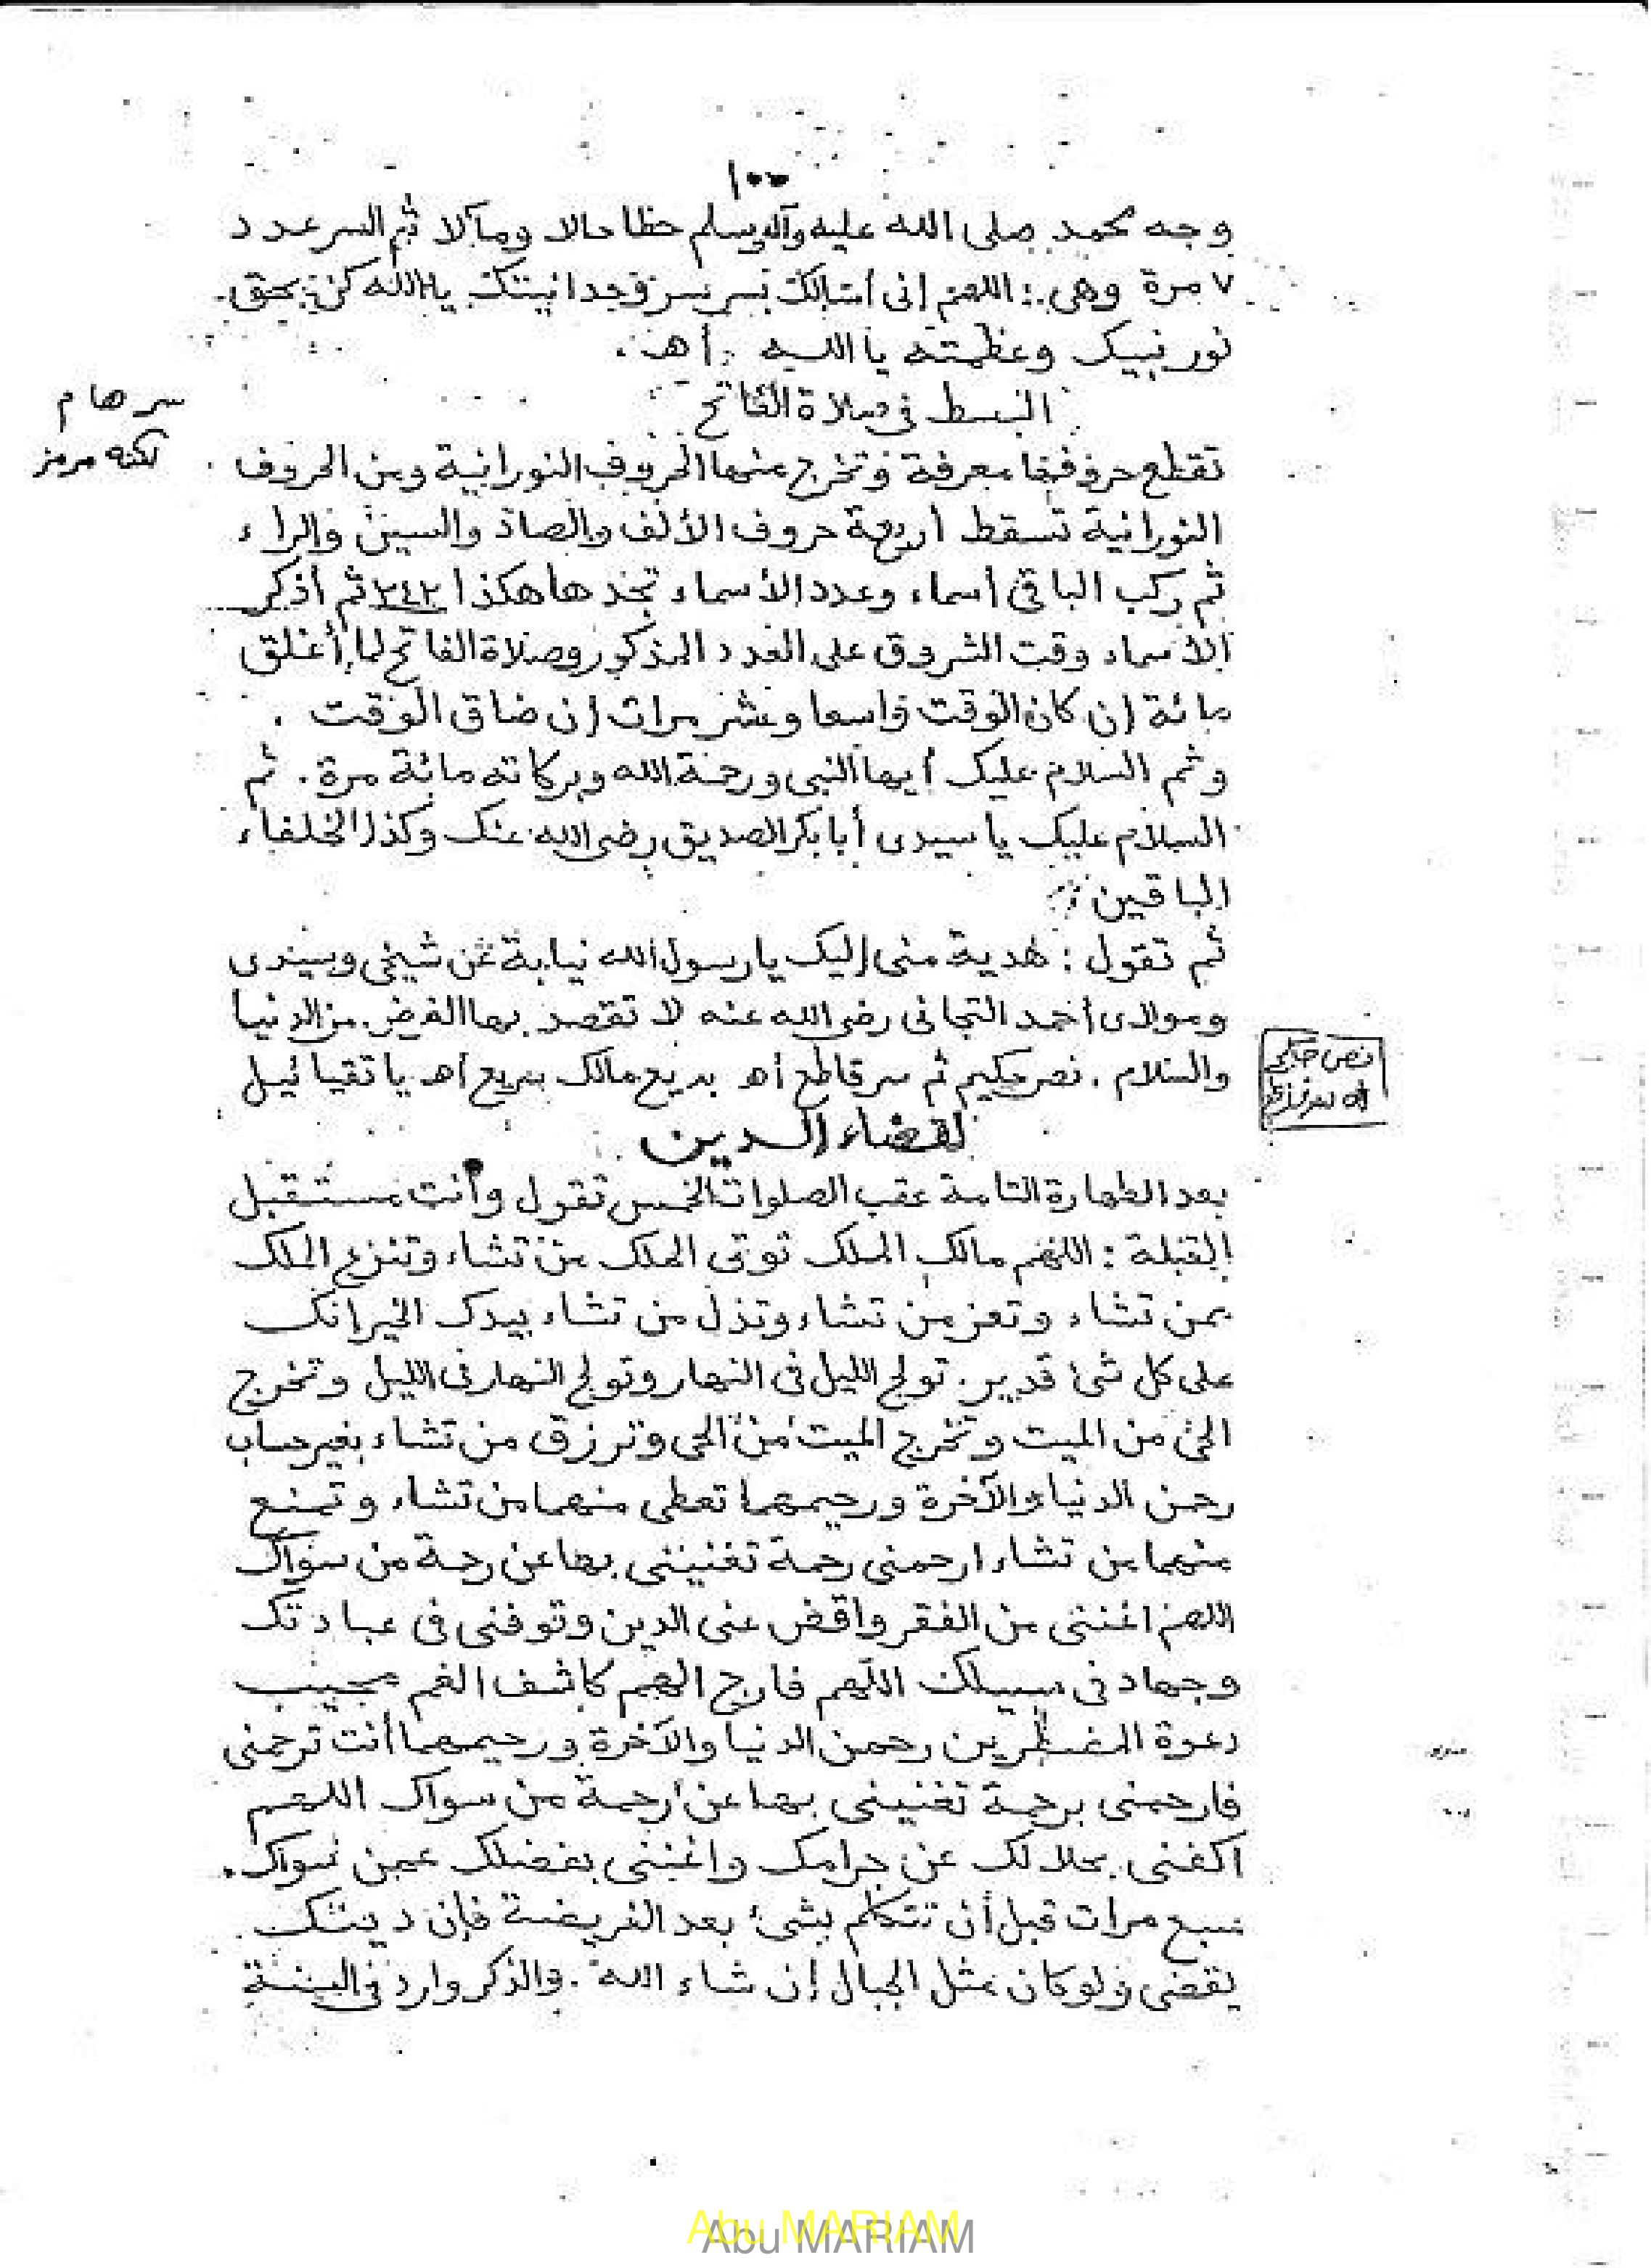 ١٠٠
وجه محمد صلى الله عليه وآله وسلم حظا حالا ومآلا ثم السر عدد
٧ مرة وهى : اللهم إنى أسالك بسر سر وحدانيتك يا الله كن بحق
نور نبيك وعظمته يا الله . أهـ .
البسط فى صلاة الفاتح
سر هام
لكنه مرمز
تقطع حروفها معرفة وتخرج منها الحروف النورانية ومن الحروف
النورانية تسقط أربعة حروف الألف والصاد والسين والراء
ثم ركب الباقى أسماء وعدد الأسماء تجدها هكذا ٢٤٢ ثم أذكر
الأسماء وقت الشروق على العدد المذكور وصلاة الفاتح لما أغلق
مائة إن كان الوقت واسعا وعشر مرات إن ضاق الوقت .
وثم السلام عليك أيها النبى ورحمة الله وبركاته مائة مرة . ثم
السلام عليك يا سيدى أبا بكر الصديق رضى الله عنك وكذا الخلفاء
الباقين :
ثم تقول : هدية منى إليك يا رسول الله نيابة عن شيخى وسيدى
ومولاى أحمد التجانى رضى الله عنه لا تقصد بها الغرض من الدنيا
والسلام . نصر حكيم ثم سر قاطع أهـ بديع مالك سريع أهـ يا تقيائيل
لقضاء الدين
بعد الطهارة التامة عقب الصلوات الخمس تقول وأنت مستقبل
القبلة : اللهم مالك الملك توتى الملك من تشاء وتنزع الملك
ممن تشاء وتعز من تشاء وتذل من تشاء بيدك الخير إنك
على كل شئ قدير . تولج الليل فى النهار وتولج النهار فى الليل وتخرج
الحى من الميت وتخرج الميت من الحى وترزق من تشاء بغير حساب
رحمن الدنيا والآخرة ورحيمهما تعطى منهما من تشاء وتمنع
منهما من تشاء ارحمنى رحمة تغنينى بها عن رحمة من سواك
اللهم اغننى من الفقر واقض عنى الدين وتوفنى فى عبادتك
وجهاد فى سبيلك اللهم فارج الهم كاشف الغم مجيب
دعوة المضطرين رحمن الدنيا والآخرة ورحيمهما أنت ترحمنى
فارحمنى برحمة تغنينى بها عن رحمة من سواك اللهم
أكفنى بحلالك عن حرامك واغننى بفضلك عمن سواك .
سبع مرات قبل أن تتكلم بشئ بعد الفريضة فإن دينك
يقضى ولو كان مثل الجبال إن شاء الله . والذكر وارد فى السنة
Abu MARIAM
Abu MARIAM